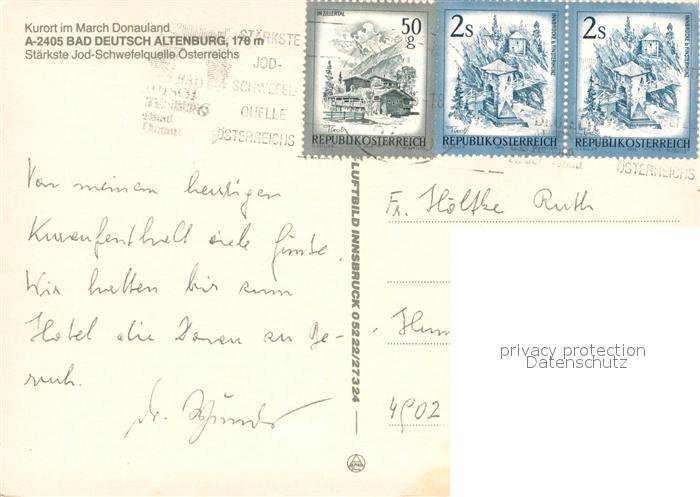 Kurort im March Donauland
A-2405 BAD DEUTSCH ALTENBURG, 178 m
Stärkste Jod-Schwefelquelle Österreichs
STÄRKSTE
JOD-
SCHWEFEL-
QUELLE
ÖSTERREICHS
BAD
IM ZILLERTAL
50
g
REPUBLIK ÖSTERREICH
2 S
REPUBLIK ÖSTERREICH
2 S
REPUBLIK ÖSTERREICH
ÖSTERREICHS
Von meinem heutigen
Kuraufenthalt viele Grüße.
Wir hatten bis zum
Hotel die Donau zu Be-
such.
Dr.
LUFTBILD INNSBRUCK 05222/27324
Fr. Höltke Ruth
4902
privacy protection
Datenschutz